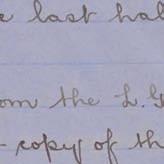 last hal
om the L.
copy of th